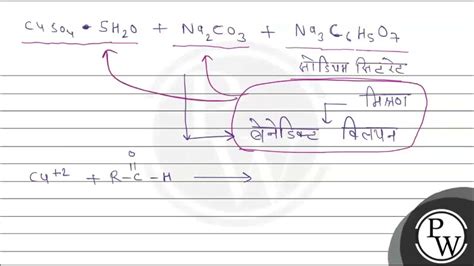 CuSO₄ • 5H₂O + Na₂CO₃ + Na₃C₆H₅O₇
सोडियम सिट्रेट
मिश्रण
बेनेडिक्ट विलयन
O
Cu+2 + R-C-H ⟶
PW